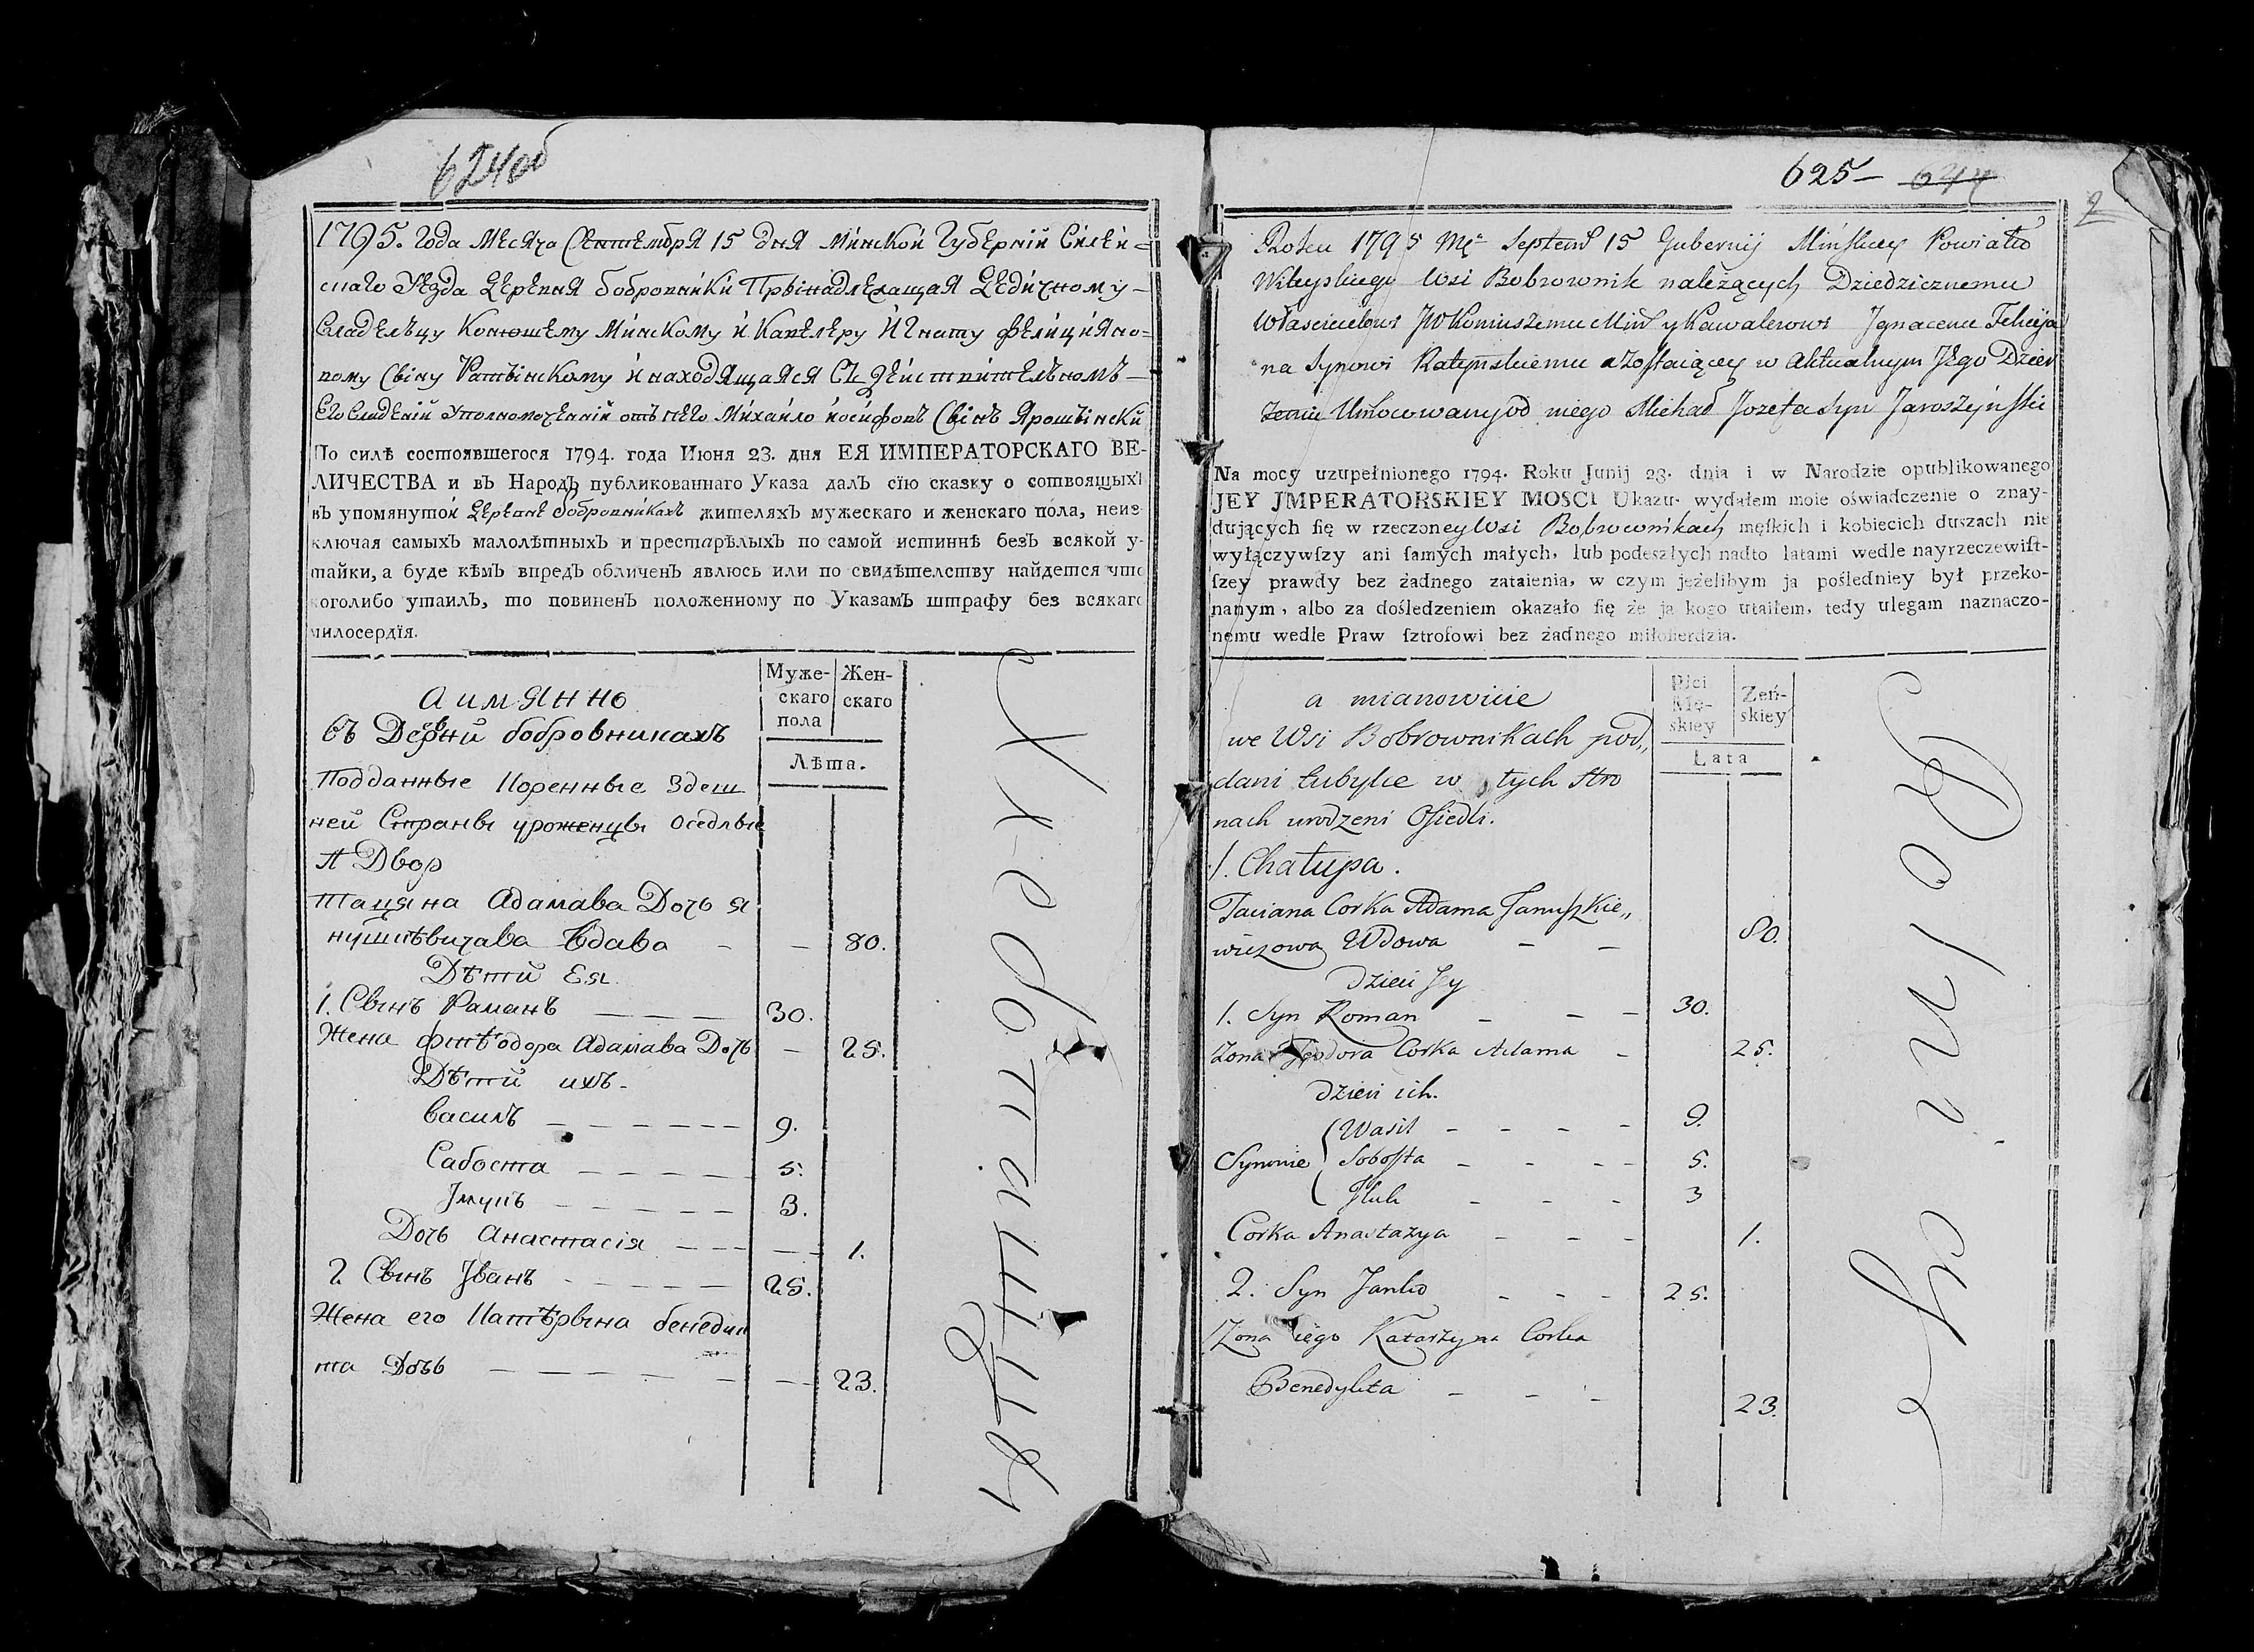 624об
1795. Года Месяца Септемьбря 15 дня Минской Губернии Вилей-
скаго Уезда деревня Бобровники Прынадлежащая Дедичному
Владельцу Конюшему Минскому и Кавалеру Игнату Фелицияно-
вому Сыну Ратынскому и находящаяся в действительномъ
Его владении уполномоченний отъ него Михайло Иосифовъ Сынъ Ярошынски
По силѣ состоявшегося 1794. года Июня 23. дня ЕЯ ИМПЕРАТОРСКАГО ВЕ-
ЛИЧЕСТВА и въ Народъ публикованнаго Указа далъ сїю сказку о состоящыхъ
въ упомянутой деревне Бобровникахъ жителяхъ мужескаго и женскаго пола, неиз-
ключая самыхъ малолѣтныхъ и престарѣлыхъ по самой истиннѣ безъ всякой у-
тайки, а буде кѣмъ впредъ обличенъ явлюсь или по свидѣтелству найдется что
коголибо утаилъ, то повиненъ положенному по Указамъ штрафу без всякаго
милосердїя.
а имянно
Муже-
скаго
пола
Жен-
скаго
Лѣта.
въ Дервни бобровникахъ
Подданные Коренные Здеш
ней Страны уроженцы Оседлые
А Двор
Тацяна Адамава Дочь Я
нушкѣвичава Вдава — — 80.
Дѣти Ея.
1. Сынъ Раманъ — — — 30.
Жена Фтѣодора Адамава Дочь — 25.
Дѣти ихъ.
Василъ — — — — — — 9.
Сабоста — — — — — 5.
Jлукъ — — — — — 3.
Дочь Анастасія — — — — — 1.
2. Сынъ Jванъ — — — — — 25.
Жена его Катѣрына бенедик
та Дочь — — — — — — — 23.
625 – 644
2
Roku 1795 Mca Septem 15 Gubernij Mińskiey Powiatu
Wileyskiego Wsi Bobrownik należących Dziedzicznemu
Włascicielowi JW Koniuszemu Miń y Kawalerowi Jgnacemu Felicija
na Synowi Ratynskiemu a zostaiącey w Aktualnym Jego Dzier
żeniu Umocowany od niego Michał Jozefa Syn Jaroszyński
Na mocy uzupełnionego 1794. Roku Junij 23. dnia i w Narodzie opublikowanego
JEY JMPERATORSKIEY MOSCI Ukazu. wydałem moie oświadczenie o znay-
dujących ſię w rzeczoney Wsi Bobrownikach męſkich i kobiecich duszach nie
wyłączywſzy ani ſamych małych, lub podeszłych nadto latami wedle nayrzeczewiſt-
ſzey prawdy bez żadnego zataienia, w czym jeżelibym ja poślednieỵ był przeko-
nanym, albo za dośledzeniem okazało ſię że ja kogo utaiłem, tedy ulegam naznaczo-
nemu wedle Praw ſztrofowi bez żadnego miłoſierdzia.
a mianowicie
Płci
Mę-
skiey
Żeń-
skiey
Lata
we Wsi Bobrownikach pod„
dani tubylce w tych stro
nach urodzeni Osiedli.
1. Chałupa.
Taciana Corka Adama Januszkie„
wiczowa Wdowa — — 80.
dzieci Jey
1. Syn Roman — — — 30.
Zona Teodora Corka Adama — 25.
dzieci ich.
Wasil — — — — 9.
Synowie Sobosta — — — — 5.
Jluk — — — 3
Corka Anastazya — — — 1.
2. Syn Janko — — — 25.
Zona iego Katarzyna Corka
Benedykta — — — 23.